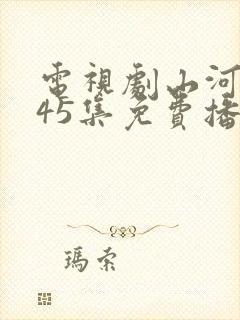 電視劇山河
45集免費播
瑪索